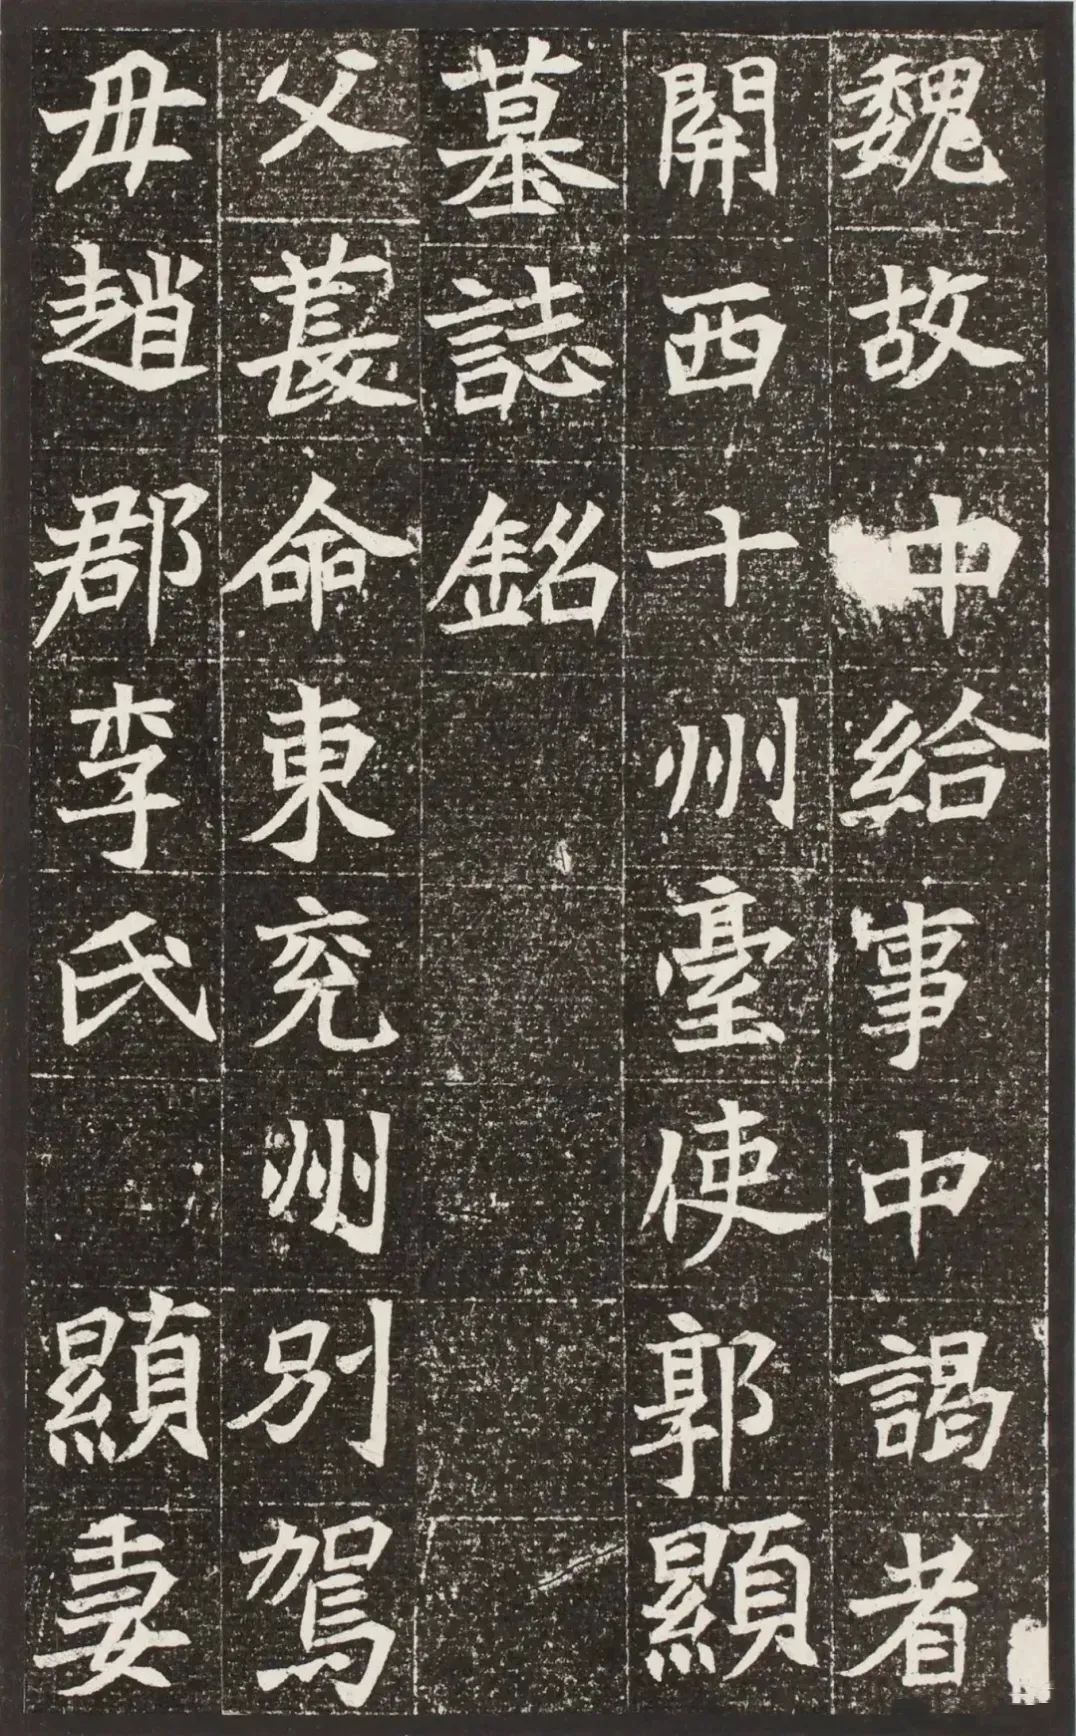 魏故中給事中謁者
開西十州臺使郭顯
墓誌銘
父萇命東兖州別駕
毋趙郡李氏 顯妻